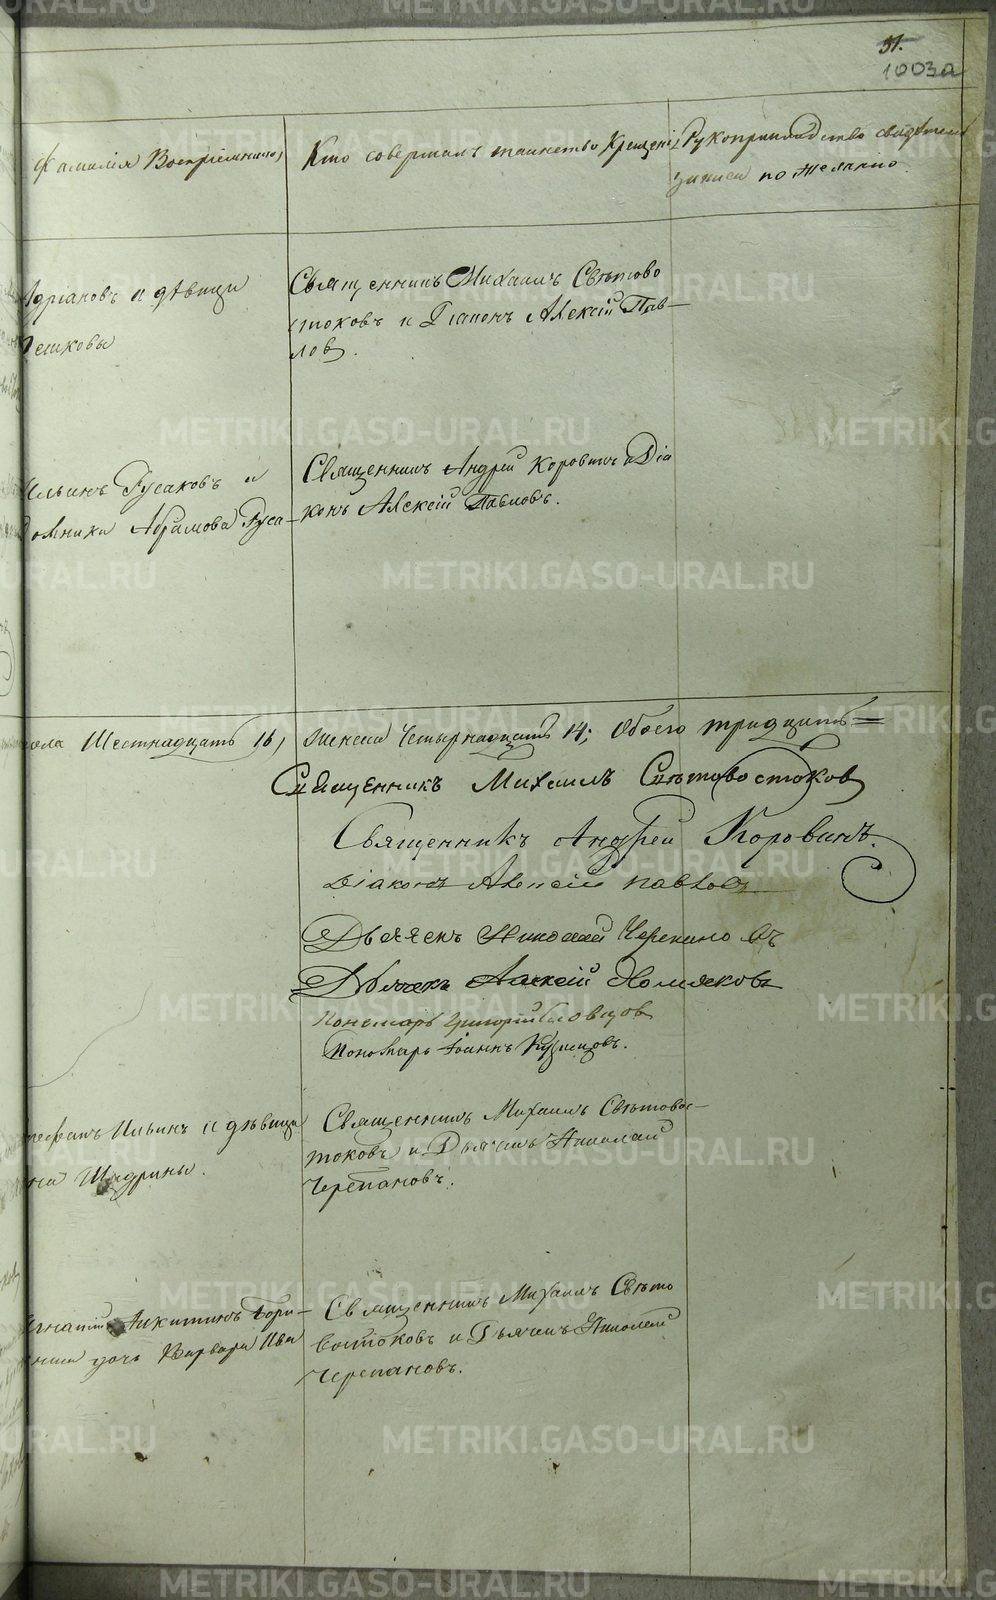 51.
1003а
Фамилія Воспріемниковъ
Кто совершалъ таинство Крещенія
Рукоприкладство свидѣтелей
записи по желанію.
Адріановъ и дѣвица
Свѧщенникъ Михаилъ Свѣтово
стоковъ и Діаконъ Алексій Пав-
ловъ.
Ильинъ Русаковъ и
Домника Абрамова Руса-
Священникъ Андрей Коровинъ и Діа
конъ Алексій Павловъ.
пола Шестнадцать 16,
женска Четырнадцать 14; Обоего тридцать=
Священникъ Михаилъ Свѣтовостоковъ
Священникъ Андрей Коровинъ.
Діаконъ Алексій Павловъ
Дьячекъ Николай Черепановъ
Дьячекъ Алексій Хомяковъ
Пономарь Григорій
Пономарь Іоаннъ Кузнецовъ.
Ильинъ и дѣвица
Шадрины.
Священникъ Михаилъ Свѣтовос-
токовъ и Дьячекъ Николай
Черепановъ.
Игнатій Никитинъ
дочь Варвара Ива
Священникъ Михаилъ Свѣто
востоковъ и Дьячекъ Николай
Черепановъ.
METRIKI.GASO-URAL.RU